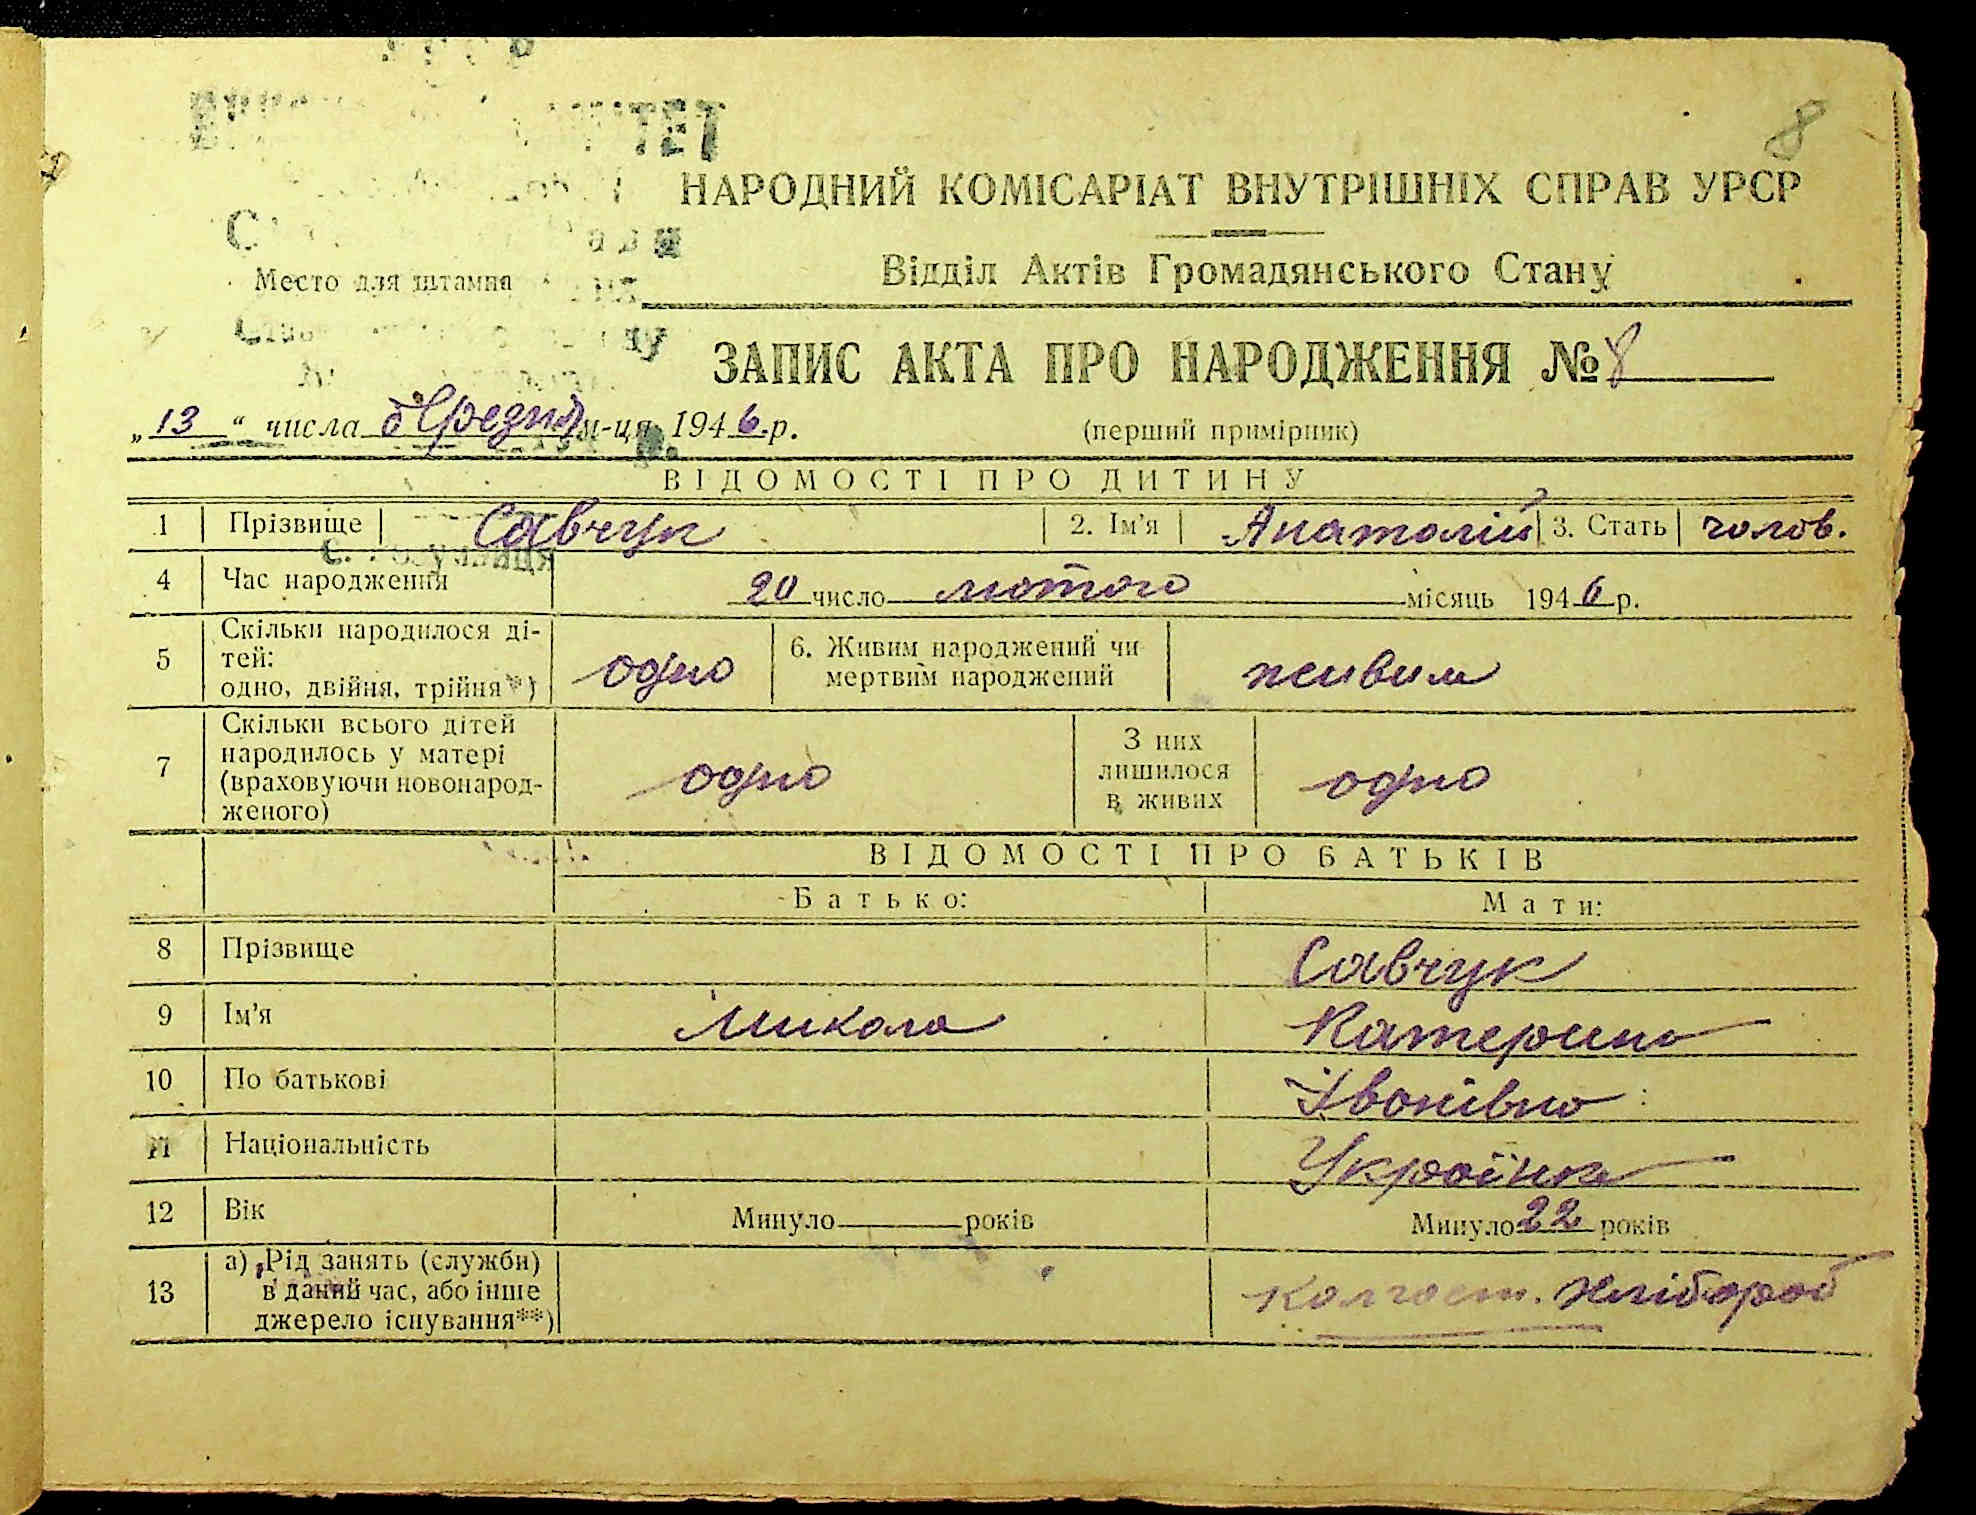 8
ТЕТ
НАРОДНИЙ КОМІСАРІАТ ВНУТРІШНІХ СПРАВ УРСР
Відділ Актів Громадянського Стану
Место для штампа
ЗАПИС АКТА ПРО НАРОДЖЕННЯ № 8
„13“ числа березня м-ця 1946 р.
(перший примірник)
ВІДОМОСТІ ПРО ДИТИНУ
1 Прізвище Савчук 2. Ім'я Анатолій 3. Стать чолов.
4 Час народження 20 число лютого місяць 1946 р.
5 Скільки народилося ді-
тей:
одно, двійня, трійня*) одно 6. Живим народжений чи
мертвим народжений живим
7 Скільки всього дітей
народилось у матері
(враховуючи новонарод-
женого) одно З них
лишилося
в живих одно
ВІДОМОСТІ ПРО БАТЬКІВ
Батько: Мати:
8 Прізвище Савчук
9 Ім'я Микола Катерина
10 По батькові Іванівна
11 Національність Українка
12 Вік Минуло років Минуло 22 років
13 а) Рід занять (служби)
в даний час, або інше
джерело існування**) колгосп. хлібороб